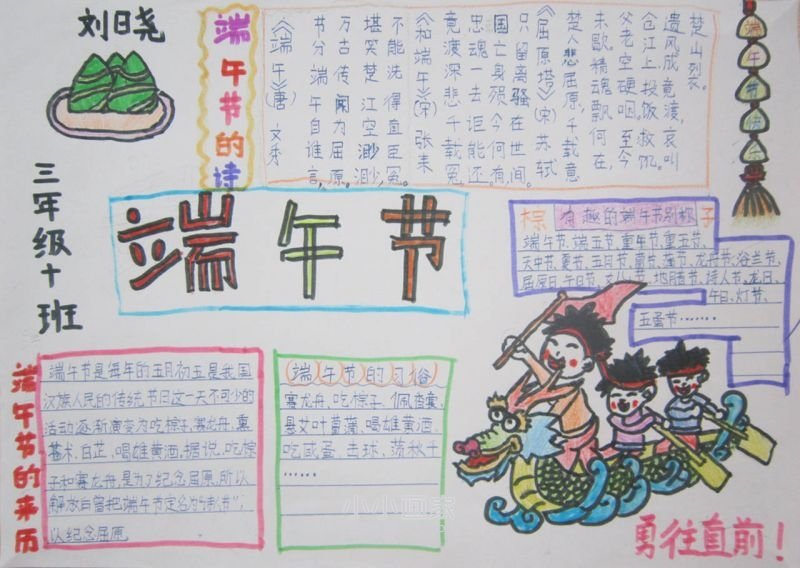 刘日尧
三年级十班
端午节的诗
《端午》(唐) 文秀
节分端午自谁言，
万古传闻为屈原。
堪笑楚江空渺渺，
不能洗得直臣冤。
《和端午》(宋) 张耒
竞渡深悲千载冤，
忠魂一去讵能还。
国亡身殒今何有，
只留离骚在世间。
《屈原塔》(宋) 苏轼
楚人悲屈原，千载意
未歇精魂飘何在，
父老空哽咽。至今
仓江上投饭救饥。
遗风成竞渡，哀叫
楚山裂。
端午节
粽 有趣的端午节别称 子
端午节、端五节、重午节、重五节、
天中节、夏节、五月节、菖节、蒲节、龙舟节、浴兰节、
屈原日、午日节、女儿节、地腊节、诗人节、龙日、
午日、灯节、
五蛋节……
端午节的来历
端午节是每年的五月初五是我国
汉族人民的传统节日这一天不可少的
活动逐渐演变为吃粽子，赛龙舟，熏
苍术、白芷，喝雄黄酒，据说，吃粽
子和赛龙舟，是为了纪念屈原，所以
解放后曾把端午节定名为“诗人节”，
以纪念屈原
端午节的习俗
赛龙舟、吃粽子、佩香囊、
悬艾叶菖蒲、喝雄黄酒、
吃咸蛋、击球、荡秋千
……
小小画家
勇往直前！